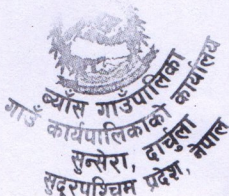 ब्याँस गाउँपालिका
गाउँ कार्यपालिकाको कार्यालय
सुन्सेरा, दार्चुला
सुदूरपश्चिम प्रदेश, नेपाल